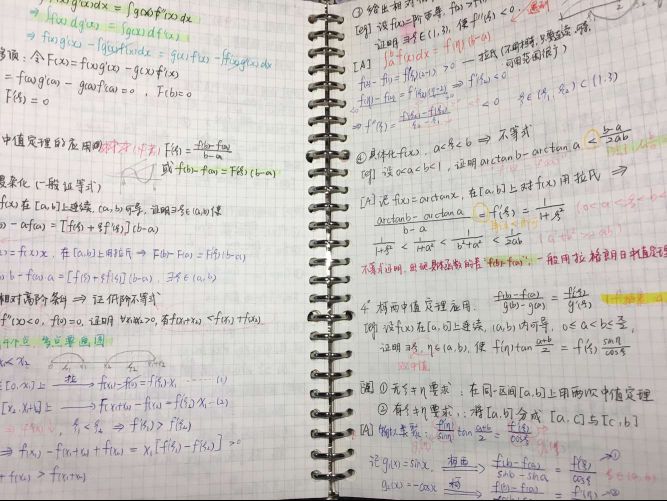 ⇒ ∫f(x)dg'(x) = ∫g(x)df'(x)
⇒ f(x)g'(x) - ∫g'(x)f'(x)dx = g(x)f'(x) - ∫f'(x)g'(x)dx
令F(x)=f(x)g'(x)-g(x)f'(x)
= f(a)g'(a) - g(a)f'(a) = 0 , F(b)=0
F'(ξ)=0
中值定理的应用 F'(ξ)=\frac{f(b)-f(a)}{b-a}
或f(b)-f(a)=F'(ξ)(b-a)
(一般证等式)
f(x)在[a,b]上连续,(a,b)可导,证明∃ξ∈(a,b)使
) - af(a) = [f(ξ)+ξf'(ξ)](b-a)
=f(x)x , 在[a,b]上用拉氏 ⇒ F(b)-F(a)=F'(ξ)(b-a)
b - f(a)a = [f(ξ)+ξf'(ξ)](b-a) , ∃ξ∈(a,b)
相对高阶条件 ⇒ 证低阶不等式
f''(x)<0, f(0)=0, 证明 ∀x₁x₂>0, 有f(x₁+x₂)<f(x₁)+f(x₂)
画图
x₁<x₂
[0,x₁]上 拉→ f(x₁)-f(0)=f'(ξ₁)x₁ ……(1)
[x₂,x₁+x₂]上 → f(x₁+x₂)-f(x₂)=f'(ξ₂)x₁ …(2)
ξ₁<ξ₂ ⇒ f'(ξ₁)>f'(ξ₂)
⇒ f(x₁)-f(x₁+x₂)+f(x₂)=x₁[f'(ξ₁)-f'(ξ₂)]>0
+f(x₂)>f(x₁+x₂)
③ 给出相对
[eg] 设f(x)=阶可导,
证明 ∃ξ∈(1,3), 使f''(ξ)<0.
[A] f(x)dx=f(η)(b-a)
f(2)-f(1)=f'(ξ₁)(2-1)>0 — 拉氏
⇒ f''(ξ)= <0 ξ∈(ξ₁,ξ₂)⊂(1,3)
④ 具体化f(x), a<ξ<b ⇒ 不等式
[eg] 设0<a<b<1, 证明arctanb-arctana<\frac{b-a}{2ab}
[A] 记f(x)=arctanx, 在[a,b]上对f(x)用拉氏 ⇒
\frac{arctanb-arctana}{b-a}=f'(ξ)=\frac{1}{1+ξ²} (0<a<ξ<b<
\frac{1}{1+ξ²}<\frac{1}{1+a²}<\frac{1}{b²+a²}<\frac{1}{2ab} (a²+b²>2ab)
不等式证明,出现具体函数的差"f(b)-f(a)", 一般用拉格朗日中值定理
4° 柯西中值定理应用. \frac{f(b)-f(a)}{g(b)-g(a)}=\frac{f'(ξ)}{g'(ξ)}
[eg] 设f(x)在[a,b]上连续,(a,b)内可导, 0≤a<b≤\frac{π}{2},
证明∃ξ,η∈(a,b), 使f'(η)tan\frac{a+b}{2}=f'(ξ)\frac{sinη}{cosξ}
双中值
① 无ξ≠η要求: 在同一区间[a,b]上用两次中值定理
② 有ξ≠η要求: 将[a,b]分成[a,c]与[c,b]
[A] \frac{f'(η)}{sinη}tan\frac{a+b}{2}=\frac{f'(ξ)}{cosξ}
记g₁(x)=sinx, 柯西→ \frac{f(b)-f(a)}{sinb-sina}=\frac{f'(ξ)}{cosξ} →①
g₂(x)=-cosx 柯西→ f(b)-f(a) f'(η) →②
ξ∈(a,